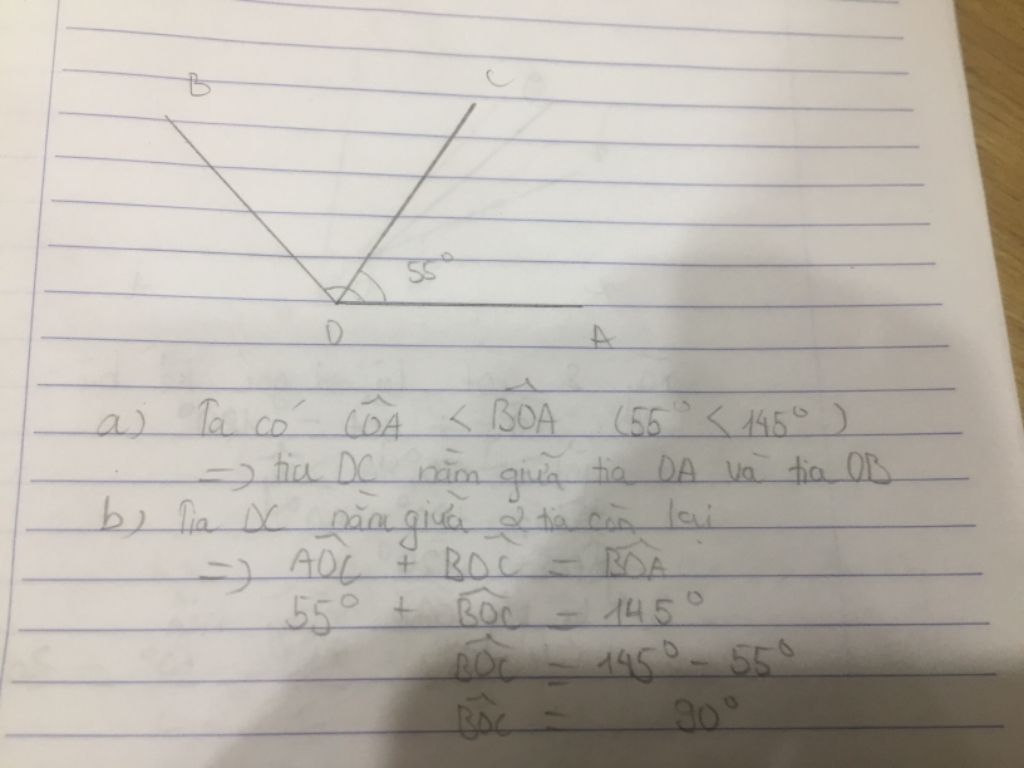 B C
55°
O A
a) Ta có COA < BOA (55° < 145°)
=> tia OC nằm giữa tia OA và tia OB
b) Tia OC nằm giữa 2 tia còn lại
=> AOC + BOC = BOA
55° + BOC = 145°
BOC = 145° - 55°
BOC = 90°